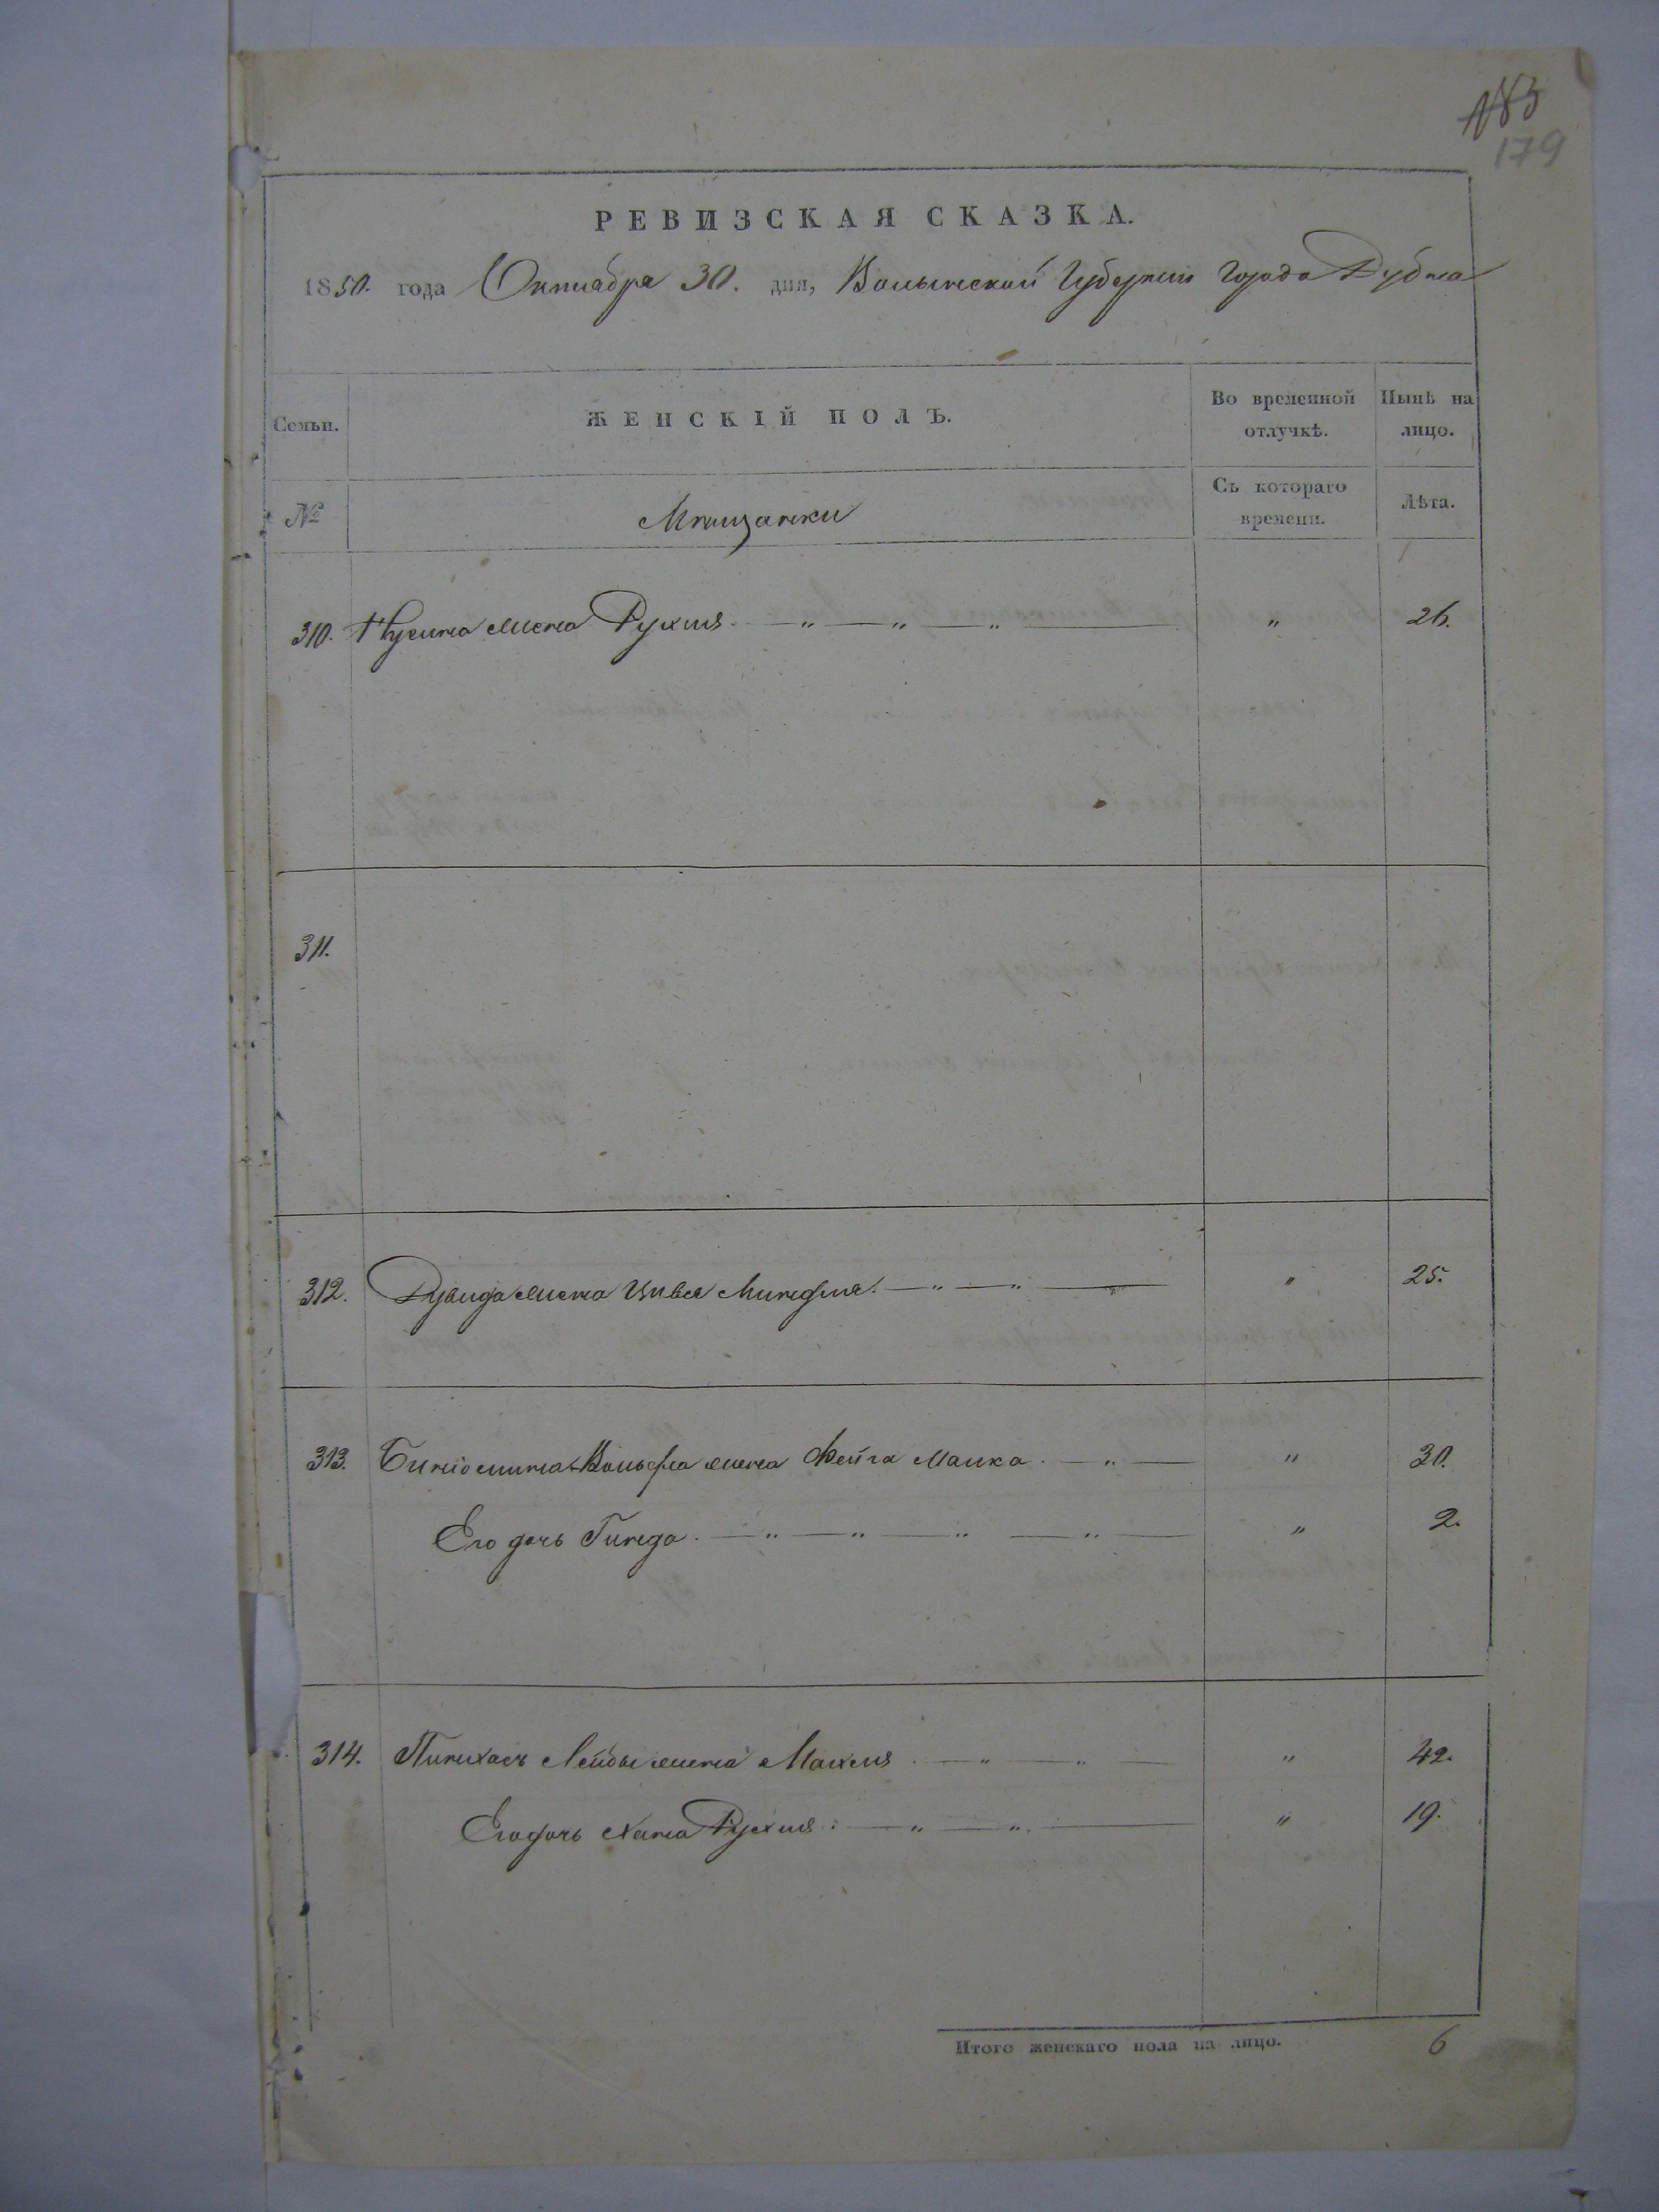 183
179
РЕВИЗСКАЯ СКАЗКА.
1850. года Октября 30. дня, Волынской Губернии Города Дубна
Семьи.
ЖЕНСКІЙ ПОЛЪ.
Во временной отлучкѣ.
Нынѣ на лицо.
№
Мѣщанки
Съ котораго времени.
Лѣта.
310. Нусина жена Рухля — " — " — " — " 26.
311.
312. Дувида жена Цивья Миндля. — " — " — " 25.
313. Биніомина Вольфа жена Фейга Малка. — " — " 30.
Его дочь Гинда. — " — " — " — " — " 2.
314. Пинхасъ Лейбы жена Махля. — " — " — " 42.
Его дочь Хана Рухля: — " — ". — " 19.
Итого женскаго пола на лицо. 6